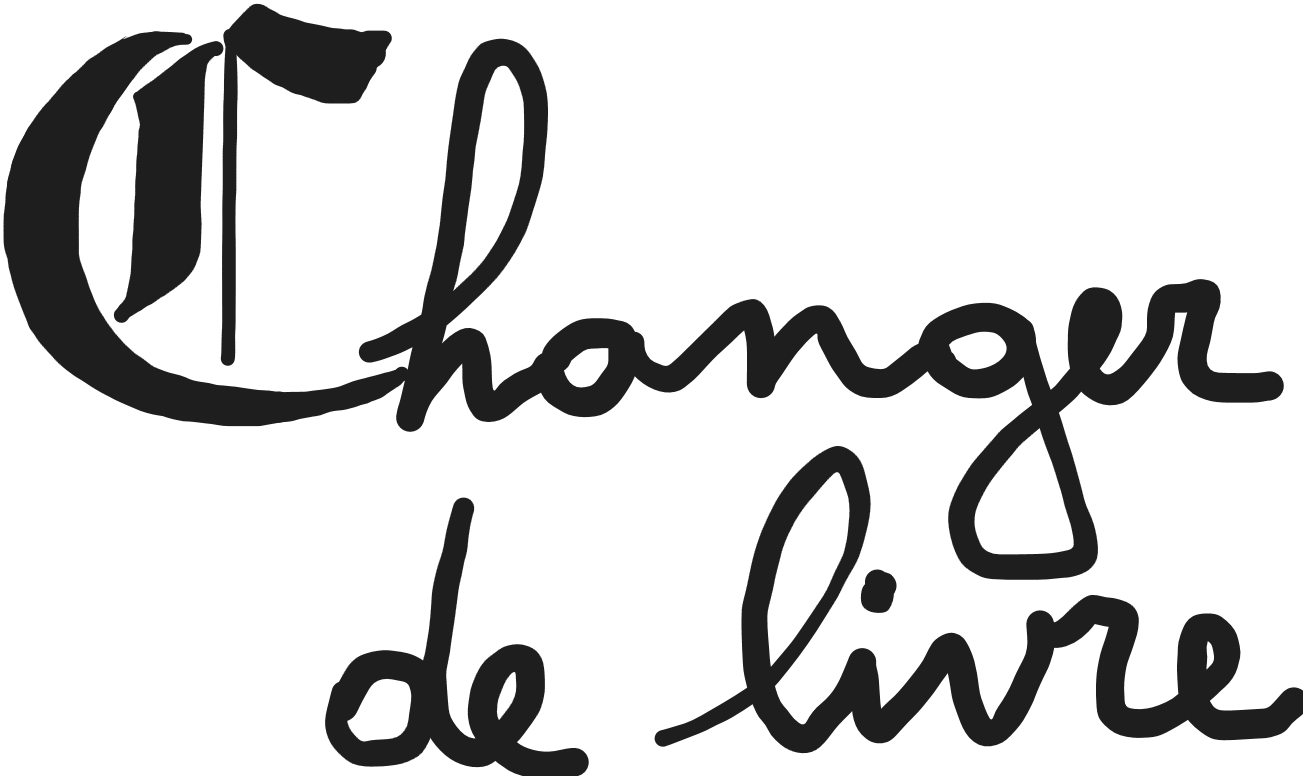 Changer
de livre